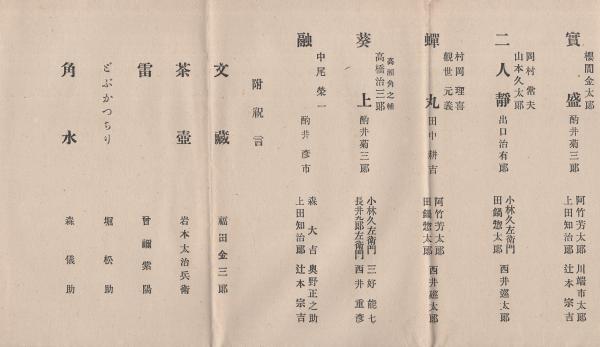 櫻間金太郎
實盛 酌井菊三郎 阿竹芳太郎 川端市太郎
上田知治郎 辻本宗吉
岡村當夫
山本久太郎
二人靜 出口治有郎 小林久左衛門 西井巡太郎
田鍋惣太郎
村岡理喜
觀世元義
蟬丸 田中耕吉 阿竹芳太郎 西井巡太郎
田鍋惣太郎
高瀬角之輔
高橋治三郎
葵上 酌井菊三郎 小林久左衛門 三好能七
長井九郎左衛門 西井重彦
中尾榮一
融 酌井彦市 森大吉 奥野正之助
上田知治郎 辻本宗吉
附祝言
文藏 福田金三郎
茶壺 岩本太治兵衛
雷 曾禰紫陽
どぶかつちり 堀松助
角水 森儀助